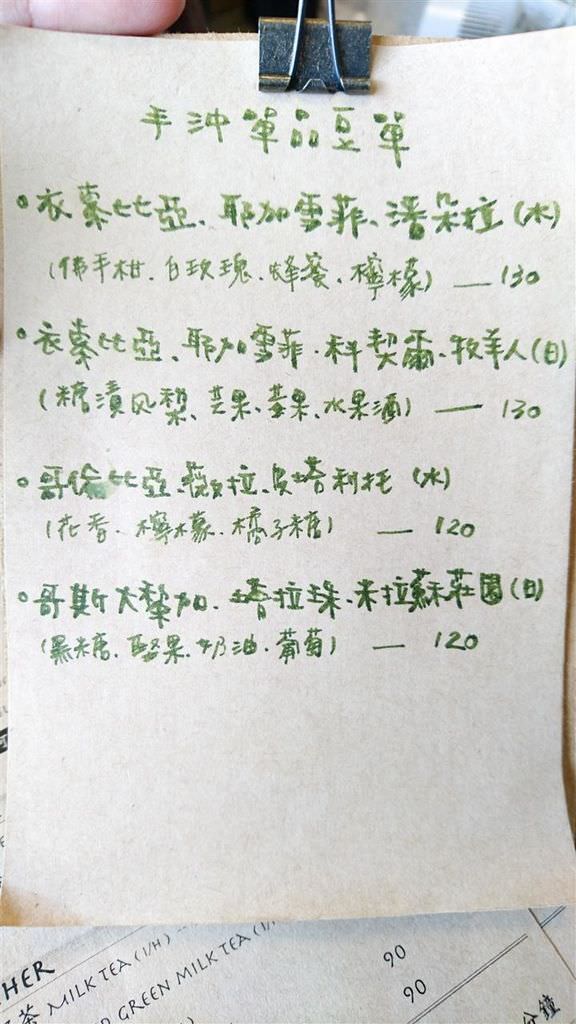 手沖單品豆單
• 衣索比亞、耶加雪菲、潘朵拉（水）
（佛手柑、白玫瑰、蜂蜜、檸檬）— 130
• 衣索比亞、耶加雪菲・科契爾・牧羊人（日）
（糖漬鳳梨、芒果、莓果、水果酒）— 130
• 哥倫比亞、薇拉、皮塔利托（水）
（花香、檸檬、橘子糖）— 120
• 哥斯大黎加、塔拉珠・米拉蘇莊園（日）
（黑糖、堅果、奶油、葡萄）— 120
HER
茶 MILK TEA (I/H) 90
GREEN MILK TEA 90
分鐘